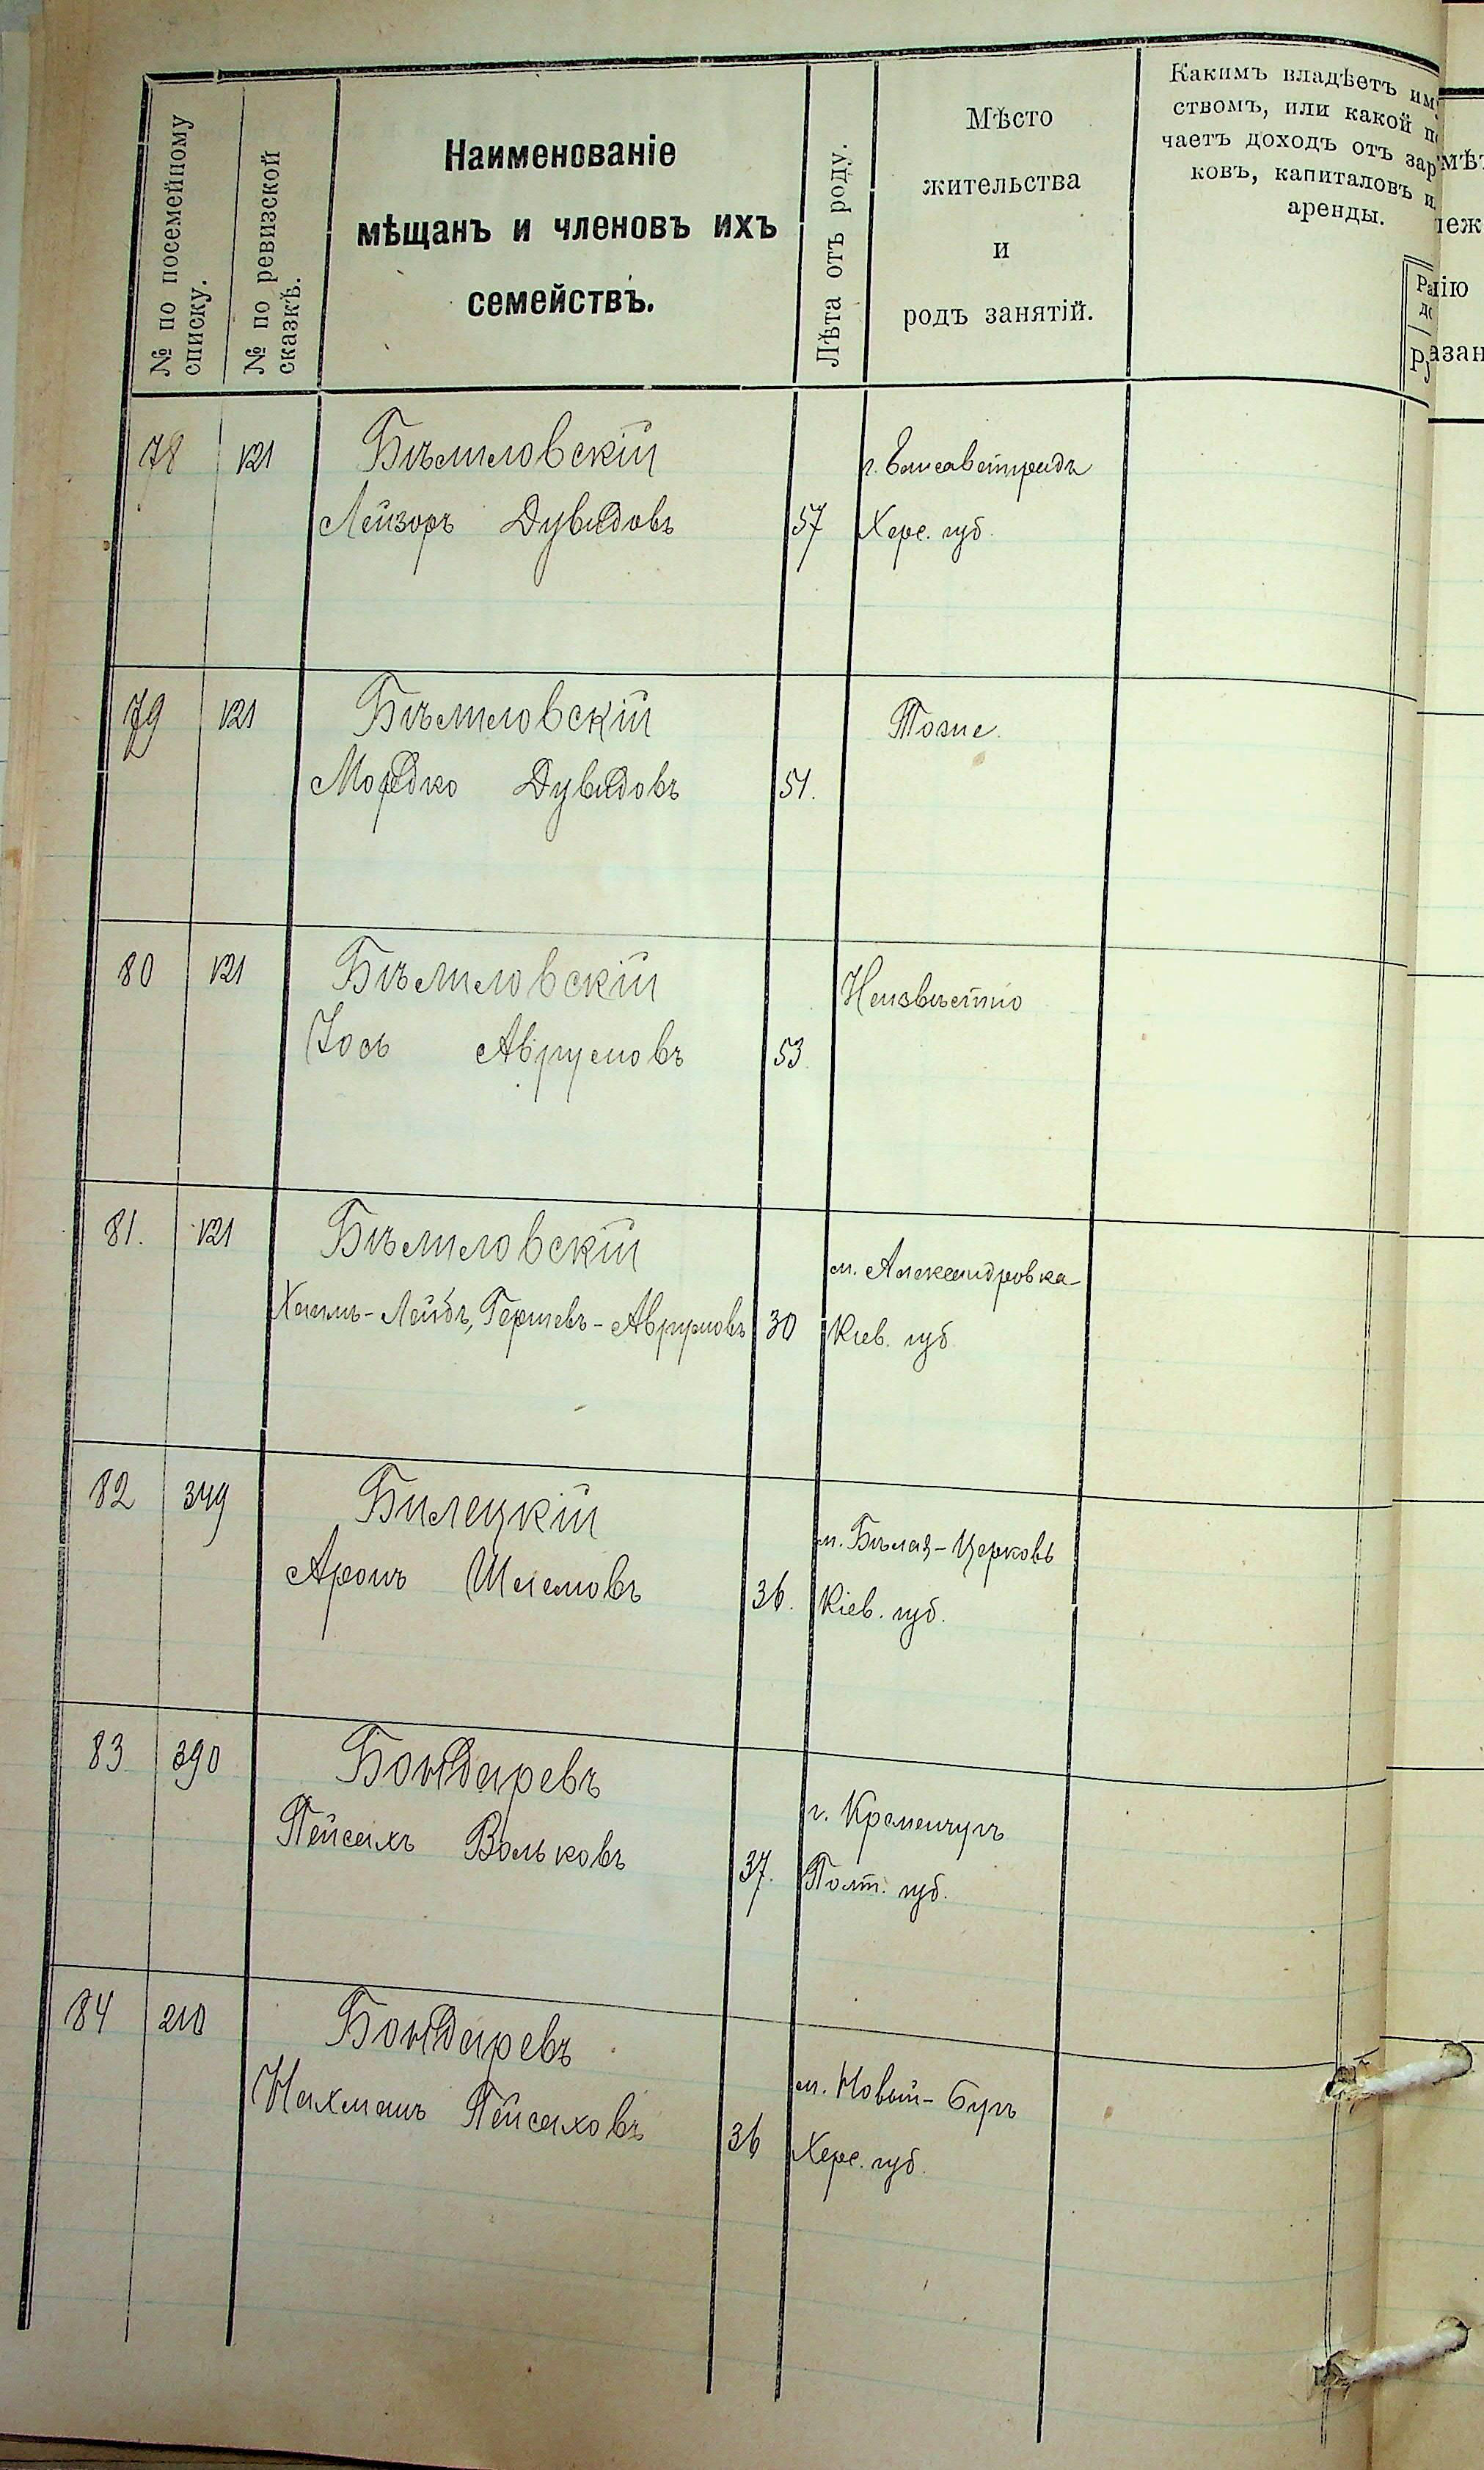 № по посемейному
списку.
№ по ревизской
сказкѣ.
Наименованіе
мѣщанъ и членовъ ихъ
семействъ.
Лѣта отъ роду.
Мѣсто
жительства
и
родъ занятій.
Какимъ владѣетъ им
ствомъ, или какой п
чаетъ доходъ отъ зар
ковъ, капиталовъ и
аренды.
78 121 Бѣлиловскій г. Елисаветградъ
Лейзоръ Дувидовъ 57 Херс. губ.
79 121 Бѣлиловскій Тоже.
Мордко Дувидовъ 51.
80 121 Бѣлиловскій Неизвѣстно
Іось Аврумовъ 53
81. 121 Бѣлиловскій м. Александровка
Хаимъ-Лейбъ, Гершевъ-Аврумовъ 30 Кіев. губ.
82 349 Билецкій м. Бѣлая-Церковь
Аронъ Шлемовъ 36. Кіев. губ.
83 390 Бондаревъ г. Кременчугъ
Пейсахъ Вольковъ 37. Полт. губ.
84 210 Бондаревъ м. Новый-Бугъ
Нахманъ Пейсаховъ 36 Херс. губ.